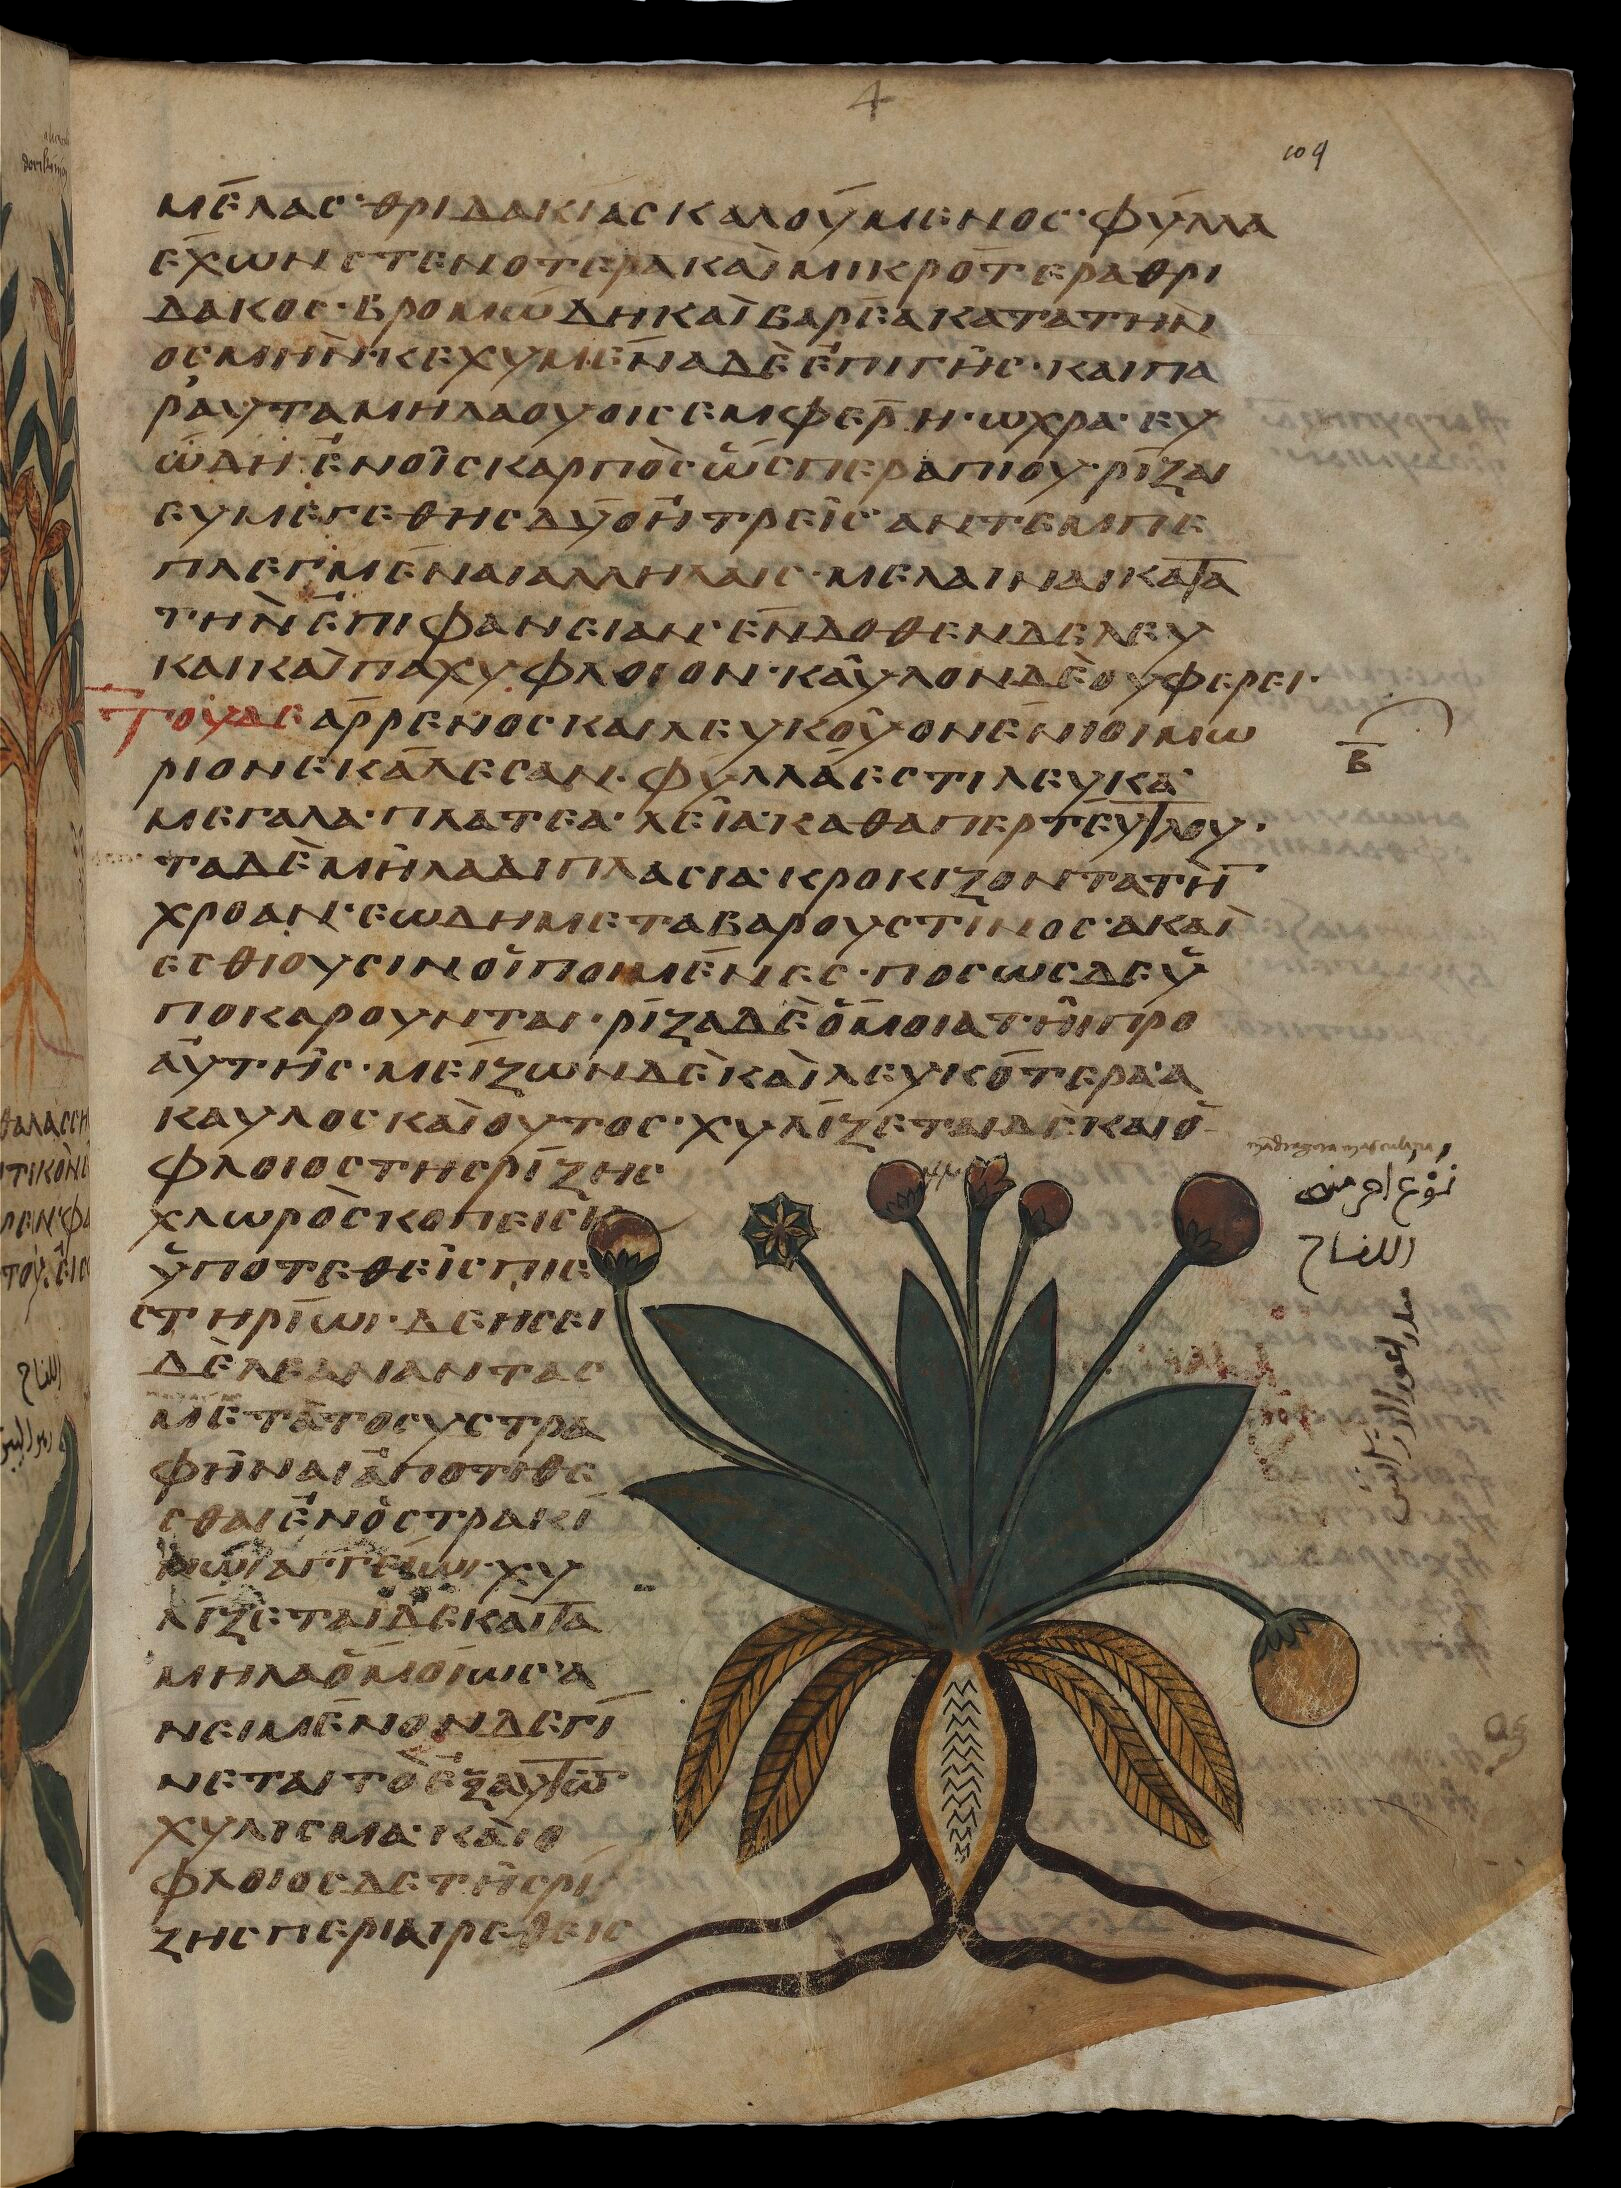 4
109
ΜΈΛΑΣ · ΘΡΙΔΑΚΙΑΣ ΚΑΛΟΥΜΕΝΟΣ · ΦΥΛΛΑ
ΕΧΩΝ ΣΤΕΝΟΤΕΡΑ ΚΑΙ ΜΙΚΡΟΤΕΡΑ ΘΡΙ
ΔΑΚΟΣ · ΒΡΟΜΩΔΗ ΚΑΙ ΒΑΡΕΑ ΚΑΤΑ ΤΗΝ
ΟΣΜΗΝ · ΚΕΧΥΜΕΝΑ ΔΕ ΕΠΙ ΓΗΣ · ΚΑΙ ΠΑ
Ρ ΑΥΤΑ ΜΗΛΑ ΟΥΟΙΣ ΕΜΦΕΡΗ · ΩΧΡΑ · ΕΥ
ΩΔΗ ΕΝ ΟΙΣ ΚΑΡΠΟΣ ΩΣΠΕΡ ΑΠΙΟΥ · ΡΙΖΑΙ
ΕΥΜΕΓΕΘΗΣ ΔΥΟ Η ΤΡΕΙΣ ΑΝΤΕΜΠΕ
ΠΛΕΓΜΕΝΑΙ ΑΛΛΗΛΑΙΣ · ΜΕΛΑΙΝΑΙ ΚΑΤΑ
ΤΗΝ ΕΠΙΦΑΝΕΙΑΝ · ΕΝΔΟΘΕΝ ΔΕ ΛΕΥ
ΚΑΙ ΚΑΙ ΠΑΧΥΦΛΟΙΟΝ · ΚΑΥΛΟΝ ΔΕ ΟΥ ΦΕΡΕΙ ·
ΤΟΥ ΔΕ ΑΡΡΕΝΟΣ ΚΑΙ ΛΕΥΚΟΥ ΟΝ ΕΝΙΟΙ ΜΩ
ΡΙΟΝ ΕΚΑΛΕΣΑΝ · ΦΥΛΛΑ ΕΣΤΙ ΛΕΥΚΑ
ΜΕΓΑΛΑ · ΠΛΑΤΕΑ · ΛΕΙΑ · ΚΑΘΑΠΕΡ ΤΕΥΤΛΟΥ ·
ΤΑ ΔΕ ΜΗΛΑ ΔΙΠΛΑΣΙΑ · ΚΡΟΚΙΖΟΝΤΑ ΤΗ
ΧΡΟΑΝ · ΕΩΔΗ ΜΕΤΑ ΒΑΡΟΥΣ ΤΙΝΟΣ · Α ΚΑΙ
ΕΣΘΙΟΥΣΙΝ ΟΙ ΠΟΙΜΕΝΕΣ · ΠΟΣΩΣ ΔΕ Υ
ΠΟΚΑΡΟΥΝΤΑΙ · ΡΙΖΑ ΔΕ ΟΜΟΙΑ ΤΗΙ ΠΡΟ
ΑΥΤΗΣ · ΜΕΙΖΩΝ ΔΕ ΚΑΙ ΛΕΥΚΟΤΕΡΑ · Α
ΚΑΥΛΟΣ ΚΑΙ ΟΥΤΟΣ · ΧΥΛΙΖΕΤΑΙ ΔΕ ΚΑΙ Ο
ΦΛΟΙΟΣ ΤΗΣ ΡΙΖΗΣ
ΧΛΩΡΟΣ ΚΟΠΕΙΣ Κ
ΥΠΟΤΕΘΕΙΣ ΠΙΕ
ΣΤΗΡΙΩΙ · ΔΕΗΣΕΙ
ΔΕ ΛΕΑΝΑΝΤΑΣ
ΜΕΤΑ ΤΟ ΣΥΣΤΡΑ
ΦΗΝΑΙ ΑΠΟΤΙΘΕ
ΣΘΑΙ ΕΝ ΟΣΤΡΑΚΙ
ΝΩΙ ΑΓΓΕΙΩΙ · ΧΥ
ΛΙΖΕΤΑΙ ΔΕ ΚΑΙ ΤΑ
ΜΗΛΑ ΟΜΟΙΩΣ · Α
ΝΕΙΜΕΝΟΝ ΔΕ ΓΙ
ΝΕΤΑΙ ΤΟ ΕΞ ΑΥΤΩ
ΧΥΛΙΣΜΑ · ΚΑΙ Ο
ΦΛΟΙΟΣ ΔΕ ΤΗΣ ΡΙ
ΖΗΣ ΠΕΡΙΑΙΡΕΘΕΙΣ
Β
نوع اخر من
اللفاح
ΘΑΛΑΣΣΗ
ΤΙΚΟΝ
ΡΕΝ ΦΥ
ΤΟΥ ΕΙΣ
اللفاح